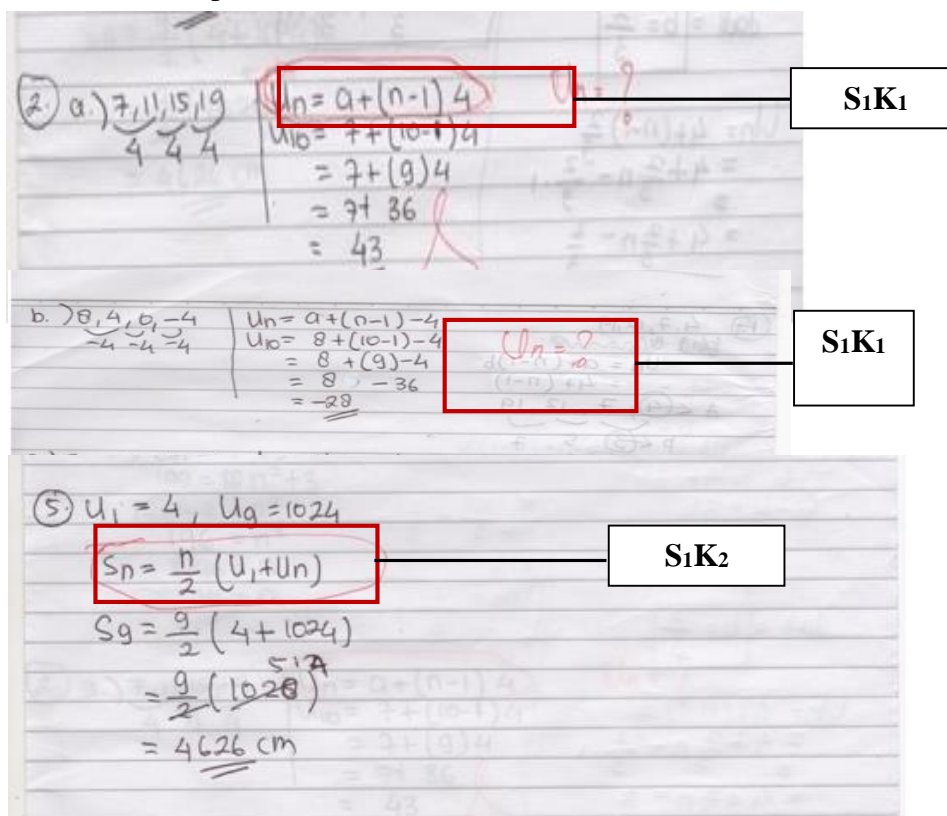 2. a.) 7, 11, 15, 19
4 4 4
Un = a + (n-1) 4
U10 = 7 + (10-1) 4
= 7 + (9) 4
= 7 + 36
= 43
Un = ?
S1K1
b. ) 8, 4, 0, -4
-4 -4 -4
Un = a + (n-1) - 4
U10 = 8 + (10-1) - 4
= 8 + (9) - 4
= 8 - 36
= -28
Un = ?
S1K1
5. U1 = 4, U9 = 1024
Sn = n/2 (U1 + Un)
S1K2
S9 = 9/2 (4 + 1024)
514
= 9/2 (1028)
= 4626 cm